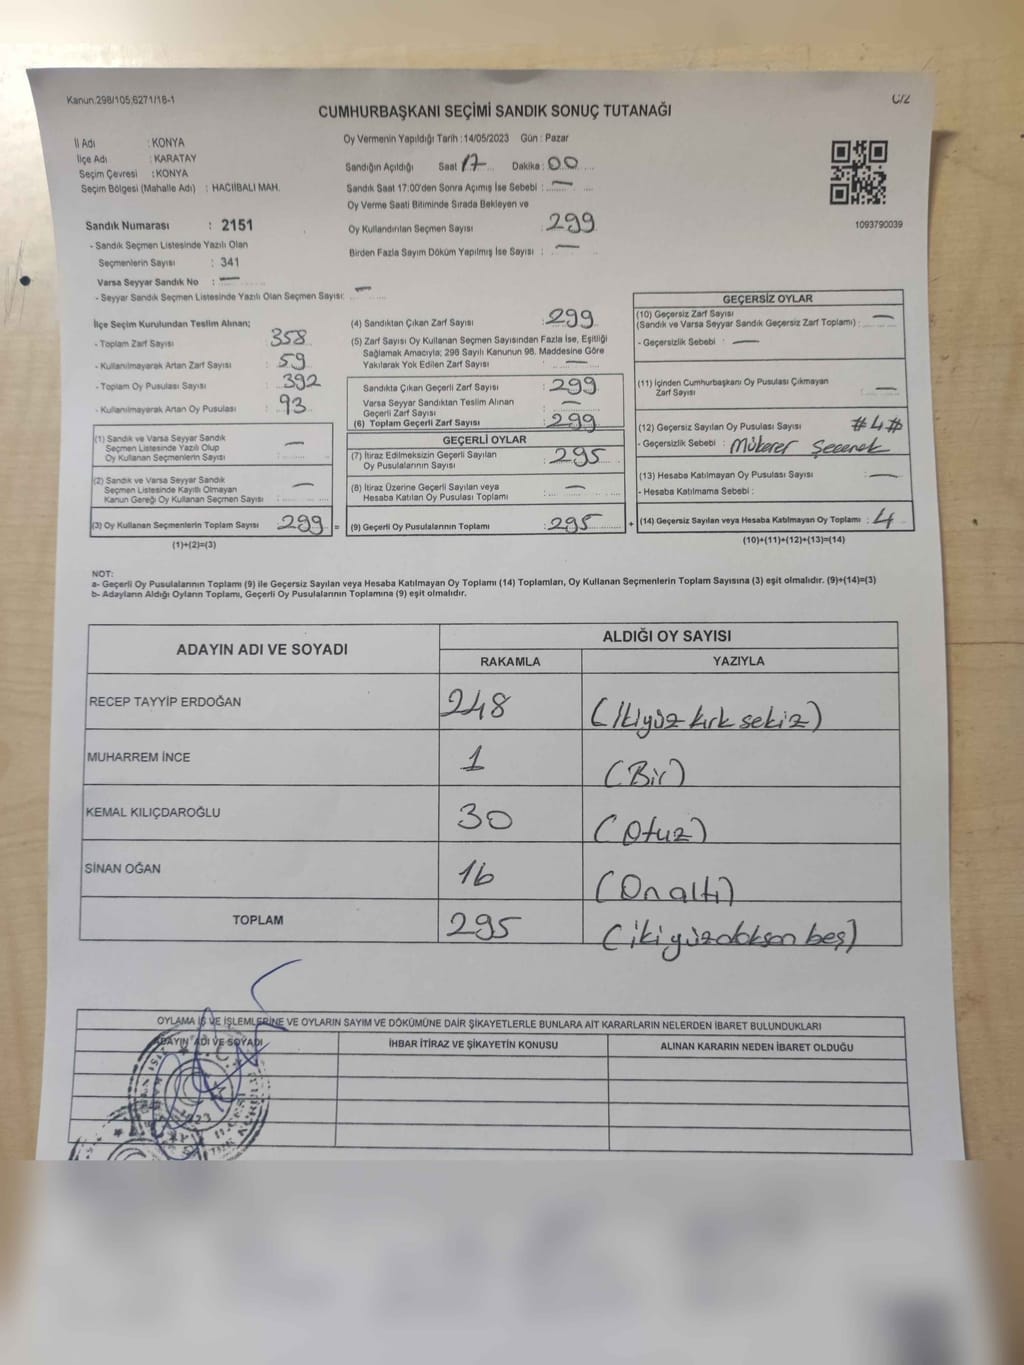 Kanun.298/105,6271/16-1
C/2
CUMHURBAŞKANI SEÇİMİ SANDIK SONUÇ TUTANAĞI
İl Adı : KONYA
İlçe Adı : KARATAY
Seçim Çevresi : KONYA
Seçim Bölgesi (Mahalle Adı) : HACIİBALI MAH.
Sandık Numarası : 2151
- Sandık Seçmen Listesinde Yazılı Olan
Seçmenlerin Sayısı : 341
Varsa Seyyar Sandık No : —
- Seyyar Sandık Seçmen Listesinde Yazılı Olan Seçmen Sayısı: —
Oy Vermenin Yapıldığı Tarih : 14/05/2023 Gün : Pazar
Sandığın Açıldığı Saat 17 Dakika : 00
Sandık Saat 17:00'den Sonra Açımış İse Sebebi : —
Oy Verme Saati Bitiminde Sırada Bekleyen ve
Oy Kullandırılan Seçmen Sayısı : 299
Birden Fazla Sayım Döküm Yapılmış İse Sayısı : —
1093790039
İlçe Seçim Kurulundan Teslim Alınan;
- Toplam Zarf Sayısı : 358
- Kullanılmayarak Artan Zarf Sayısı : 59
- Toplam Oy Pusulası Sayısı : 392
- Kullanılmayarak Artan Oy Pusulası : 93
(1) Sandık ve Varsa Seyyar Sandık
Seçmen Listesinde Yazılı Olup
Oy Kullanan Seçmenlerin Sayısı : —
(2) Sandık ve Varsa Seyyar Sandık
Seçmen Listesinde Kayıtlı Olmayan
Kanun Gereği Oy Kullanan Seçmen Sayısı : —
(3) Oy Kullanan Seçmenlerin Toplam Sayısı : 299 =
(1)+(2)=(3)
(4) Sandıktan Çıkan Zarf Sayısı : 299
(5) Zarf Sayısı Oy Kullanan Seçmen Sayısından Fazla İse, Eşitliği
Sağlamak Amacıyla; 298 Sayılı Kanunun 98. Maddesine Göre
Yakılarak Yok Edilen Zarf Sayısı : —
Sandıkta Çıkan Geçerli Zarf Sayısı : 299
Varsa Seyyar Sandıktan Teslim Alınan
Geçerli Zarf Sayısı : —
(6) Toplam Geçerli Zarf Sayısı : 299
GEÇERLİ OYLAR
(7) İtiraz Edilmeksizin Geçerli Sayılan
Oy Pusulalarının Sayısı : 295
(8) İtiraz Üzerine Geçerli Sayılan veya
Hesaba Katılan Oy Pusulası Toplamı : —
(9) Geçerli Oy Pusulalarının Toplamı : 295 +
GEÇERSİZ OYLAR
(10) Geçersiz Zarf Sayısı
(Sandık ve Varsa Seyyar Sandık Geçersiz Zarf Toplamı) : —
- Geçersizlik Sebebi : —
(11) İçinden Cumhurbaşkanı Oy Pusulası Çıkmayan
Zarf Sayısı : —
(12) Geçersiz Sayılan Oy Pusulası Sayısı : #4#
- Geçersizlik Sebebi : Mükerer Seçenek
(13) Hesaba Katılmayan Oy Pusulası Sayısı : —
- Hesaba Katılmama Sebebi :
(14) Geçersiz Sayılan veya Hesaba Katılmayan Oy Toplamı : 4
(10)+(11)+(12)+(13)=(14)
NOT:
a- Geçerli Oy Pusulalarının Toplamı (9) ile Geçersiz Sayılan veya Hesaba Katılmayan Oy Toplamı (14) Toplamları, Oy Kullanan Seçmenlerin Toplam Sayısına (3) eşit olmalıdır. (9)+(14)=(3)
b- Adayların Aldığı Oyların Toplamı, Geçerli Oy Pusulalarının Toplamına (9) eşit olmalıdır.
ADAYIN ADI VE SOYADI
ALDIĞI OY SAYISI
RAKAMLA YAZIYLA
RECEP TAYYİP ERDOĞAN 248 (İkiyüz kırk sekiz)
MUHARREM İNCE 1 (Bir)
KEMAL KILIÇDAROĞLU 30 (Otuz)
SİNAN OĞAN 16 (On altı)
TOPLAM 295 (iki yüzdoksan beş)
OYLAMA İŞ VE İŞLEMLERİNE VE OYLARIN SAYIM VE DÖKÜMÜNE DAİR ŞİKAYETLERLE BUNLARA AİT KARARLARIN NELERDEN İBARET BULUNDUKLARI
ADAYIN ADI VE SOYADI İHBAR İTİRAZ VE ŞİKAYETİN KONUSU ALINAN KARARIN NEDEN İBARET OLDUĞU